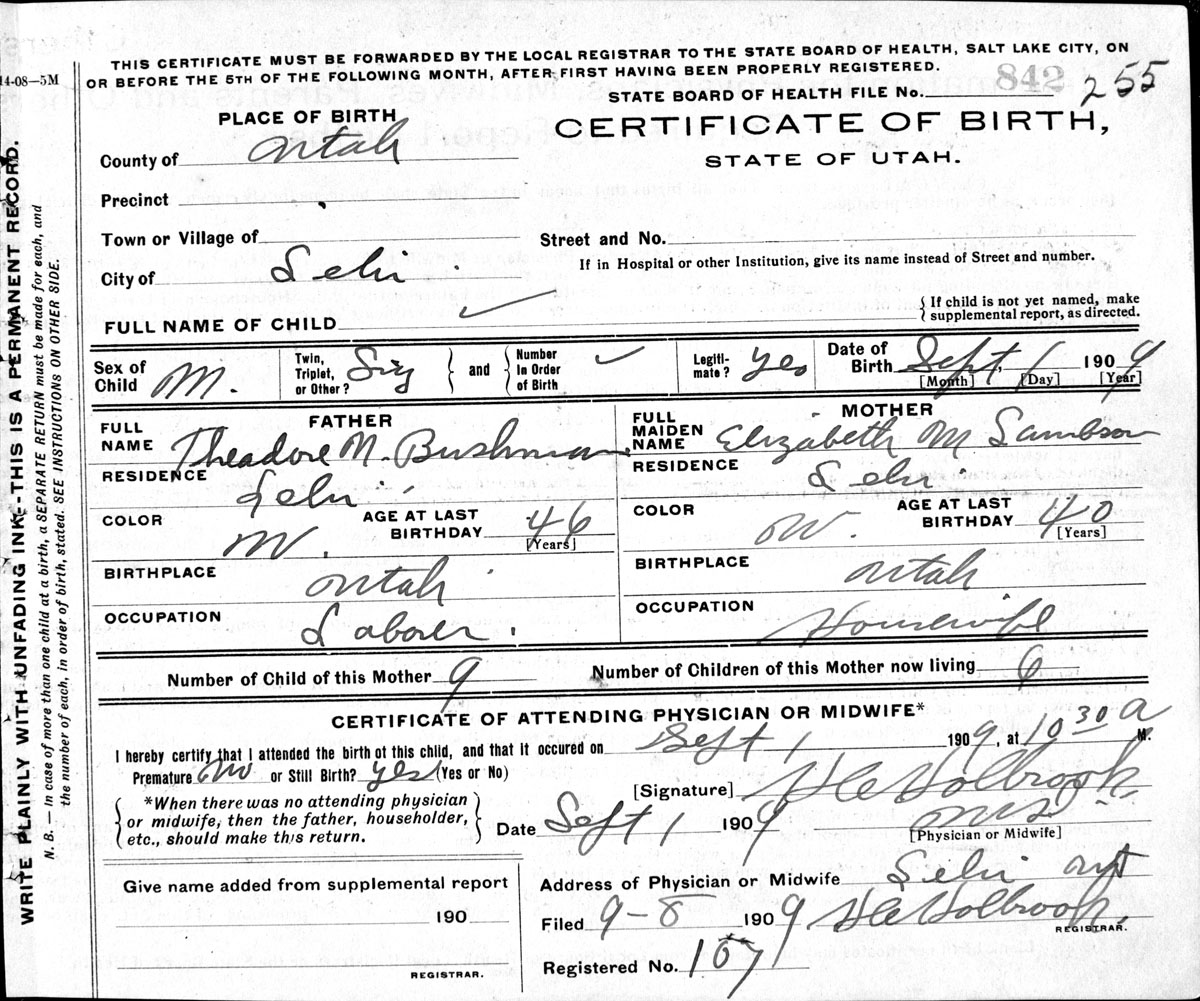 14-08—5M
THIS CERTIFICATE MUST BE FORWARDED BY THE LOCAL REGISTRAR TO THE STATE BOARD OF HEALTH, SALT LAKE CITY, ON
OR BEFORE THE 5TH OF THE FOLLOWING MONTH, AFTER FIRST HAVING BEEN PROPERLY REGISTERED.
STATE BOARD OF HEALTH FILE No. 842 255
PLACE OF BIRTH
CERTIFICATE OF BIRTH,
STATE OF UTAH.
County of Utah
Precinct
Town or Village of
Street and No.
City of Lehi
If in Hospital or other Institution, give its name instead of Street and number.
FULL NAME OF CHILD
{ If child is not yet named, make
supplemental report, as directed.
Sex of Child M.
Twin, Triplet, or Other? Sing } and { Number In Order of Birth ✓
Legiti-mate? yes
Date of Birth Sept, 1 1909
[Month] [Day] [Year]
FATHER
FULL NAME Theadore M. Bushman
RESIDENCE Lehi
COLOR W.
AGE AT LAST BIRTHDAY 46
[Years]
BIRTHPLACE Utah
OCCUPATION Laborer.
MOTHER
FULL MAIDEN NAME Elizabeth M Lambson
RESIDENCE Lehi
COLOR W.
AGE AT LAST BIRTHDAY 40
[Years]
BIRTHPLACE Utah
OCCUPATION Housewife
Number of Child of this Mother 9
Number of Children of this Mother now living 6
CERTIFICATE OF ATTENDING PHYSICIAN OR MIDWIFE*
I hereby certify that I attended the birth of this child, and that it occured on Sept 1 1909, at 10 30 A M.
Premature No or Still Birth? yes (Yes or No)
[Signature] H C Holbrook
*When there was no attending physician
or midwife, then the father, householder,
etc., should make this return.
Date Sept 1 1909
[Physician or Midwife]
Give name added from supplemental report
190
REGISTRAR.
Address of Physician or Midwife Lehi Ut
Filed 9-8 1909 H C Holbrook.
REGISTRAR.
Registered No. 107
WRITE PLAINLY WITH UNFADING INK—THIS IS A PERMANENT RECORD.
N. B. — In case of more than one child at a birth, a SEPARATE RETURN must be made for each, and
the number of each, in order of birth, stated. SEE INSTRUCTIONS ON OTHER SIDE.